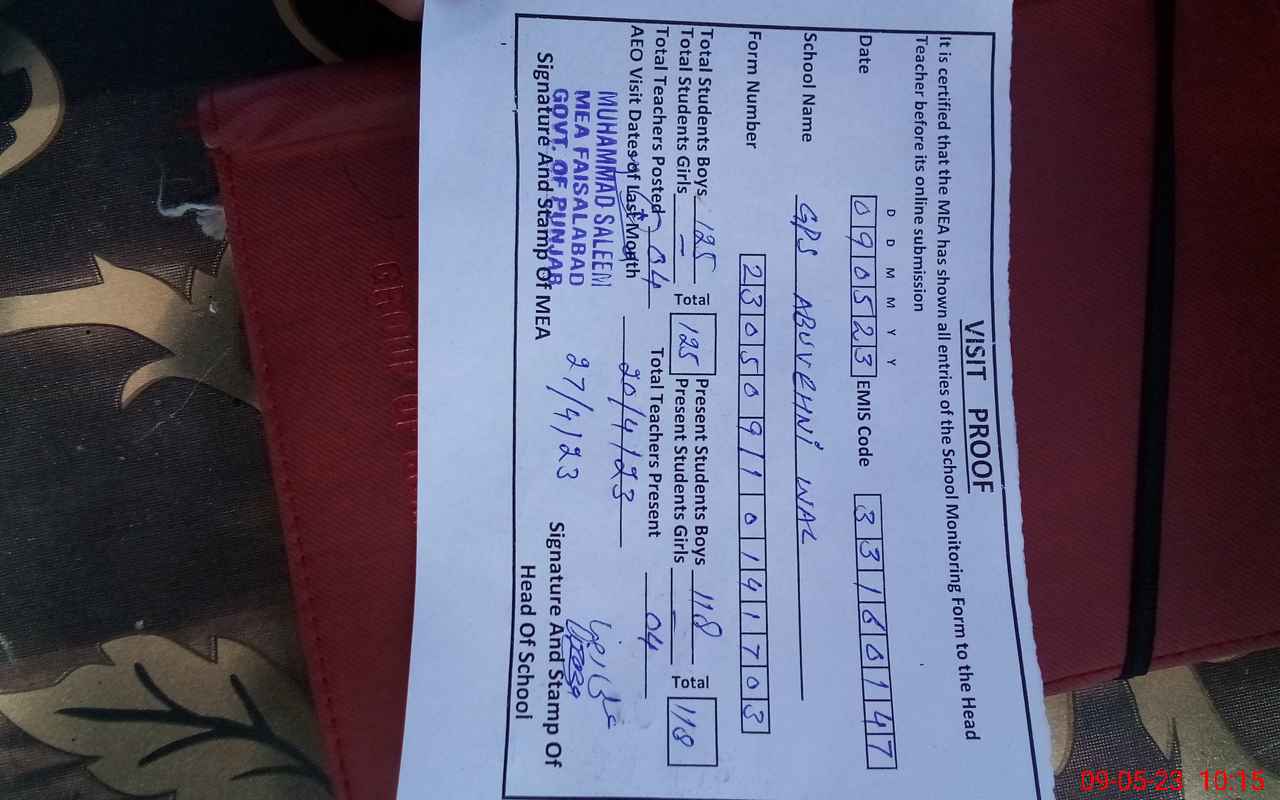 VISIT PROOF
It is certified that the MEA has shown all entries of the School Monitoring Form to the Head
Teacher before its online submission
D D M M Y Y
Date 090523 EMIS Code 33160147
School Name GPS ABUVEHNI WAL
Form Number 23050910141703
Total Students Boys 125 Total 125 Present Students Boys 118 Total 118
Total Students Girls — Present Students Girls —
Total Teachers Posted 04 Total Teachers Present 04
AEO Visit Dates of Last Month 20/4/23
27/4/23
MUHAMMAD SALEEM
MEA FAISALABAD
GOVT. OF PUNJAB
Signature And Stamp Of MEA
Signature And Stamp Of
Head Of School
09-05-23 10:15